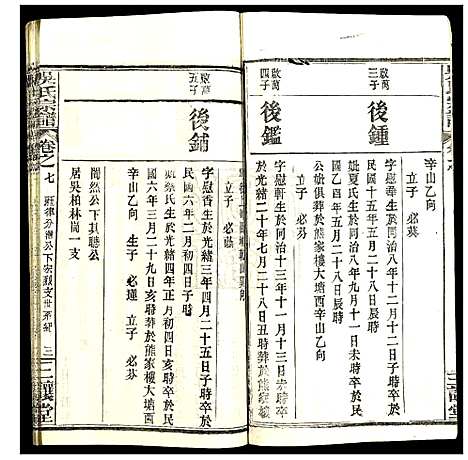 辛山乙向
立子　必棻
啟萬三子
後鍾
字慰華生於同治八年十二月十二日子時卒於
民國十五年五月二十八日辰時
姚夏氏生於同治八年九月十一日未時卒於民
國乙酉年五月二十八日辰時
公妣俱葬於熊家樓大塘西辛山乙向
立子　必芬
啟萬四子
後鑑
字慰軒生於同治十三年十一月十三日寅時卒於
光緒二十年七月二十八日丑時
立子
啟萬五子
後鋪
字慰香生於光緒三年四月二十五日子時卒於
民國六年二月初四日亥時
姚蔡氏生於光緒四年正月初四日亥時卒於民
國六年三月二十九日亥時葬於熊家樓大塘西
辛山乙向　生子　必瑾　立子　必芬
闇然公下其聰公
居吳柏林崗一支
吳氏宗譜
卷之七
三
三讓堂